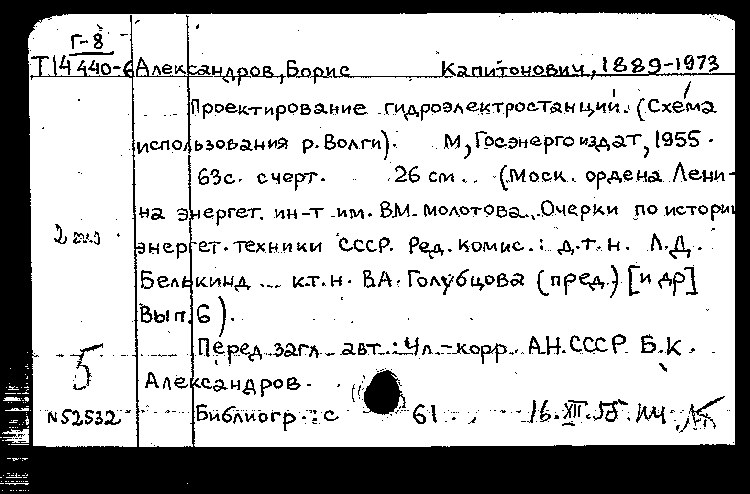 Г-8
Т14440-6 Александров, Борис Капитонович, 1889-1973
Проектирование гидроэлектростанций. (Схема
использования р. Волги). М, Госэнергоиздат, 1955.
63с. с черт. 26 см. (Моск. ордена Лени-
на энергет. ин-т им. В.М. Молотова. Очерки по истории
2 экз.
энергет. техники СССР. Ред. комис.: д.т.н. Л.Д.
Белькинд ... к.т.н. В.А. Голубцова (пред.) [и др]
Вып. 6).
Перед загл. авт.: Чл.-корр. А.Н. СССР Б.К.
5
Александров.
N52532 Библиогр.: с 61. 16.XII.55.